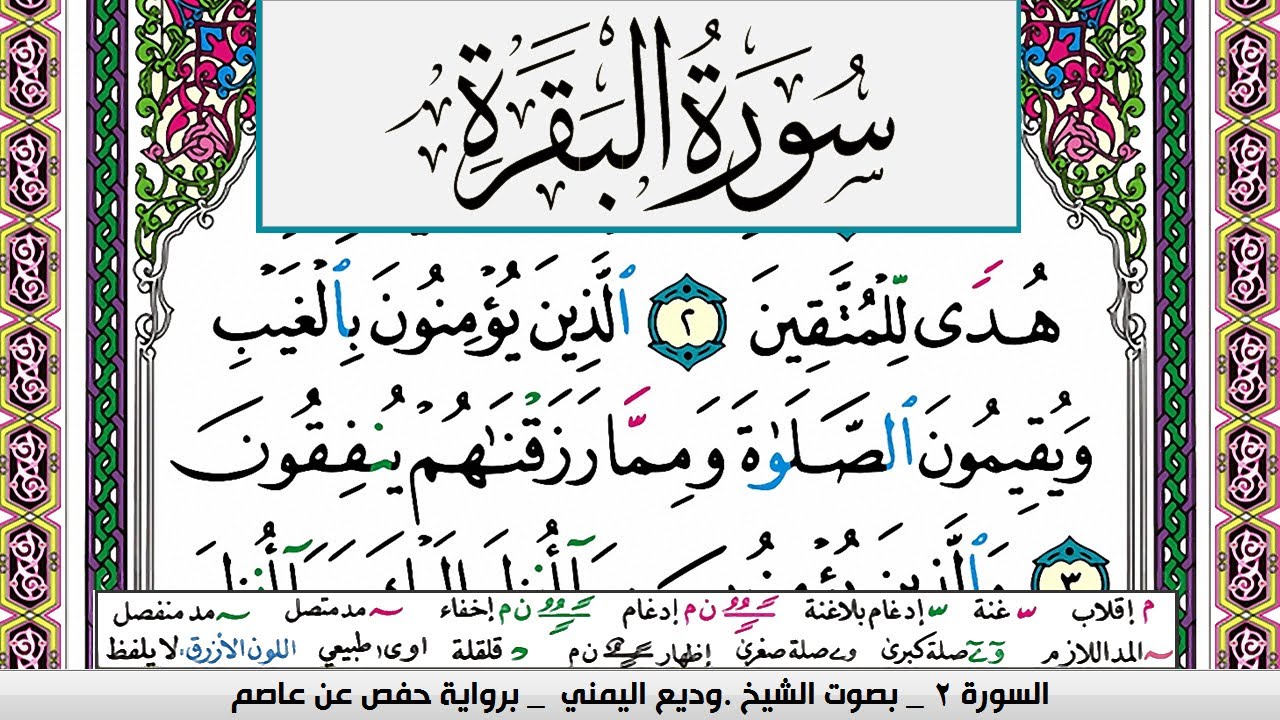 سُورَةُ البَقَرَةِ
هُدًى لِّلْمُتَّقِينَ ٢ ٱلَّذِينَ يُؤْمِنُونَ بِٱلْغَيْبِ
وَيُقِيمُونَ ٱلصَّلَوٰةَ وَمِمَّا رَزَقْنَٰهُمْ يُنفِقُونَ
٣ وَٱلَّذِينَ يُؤْمِنُونَ
م إقلاب غنة إدغام بلاغنة ن م إدغام ن م إخفاء مد متصل مد منفصل
المد اللازم صلة كبرىٰ صلة صغرىٰ إظهار ن م قلقلة اوى طبيعي اللون الأزرق: لا يلفظ
السورة ٢ _ بصوت الشيخ .وديع اليمني _ برواية حفص عن عاصم